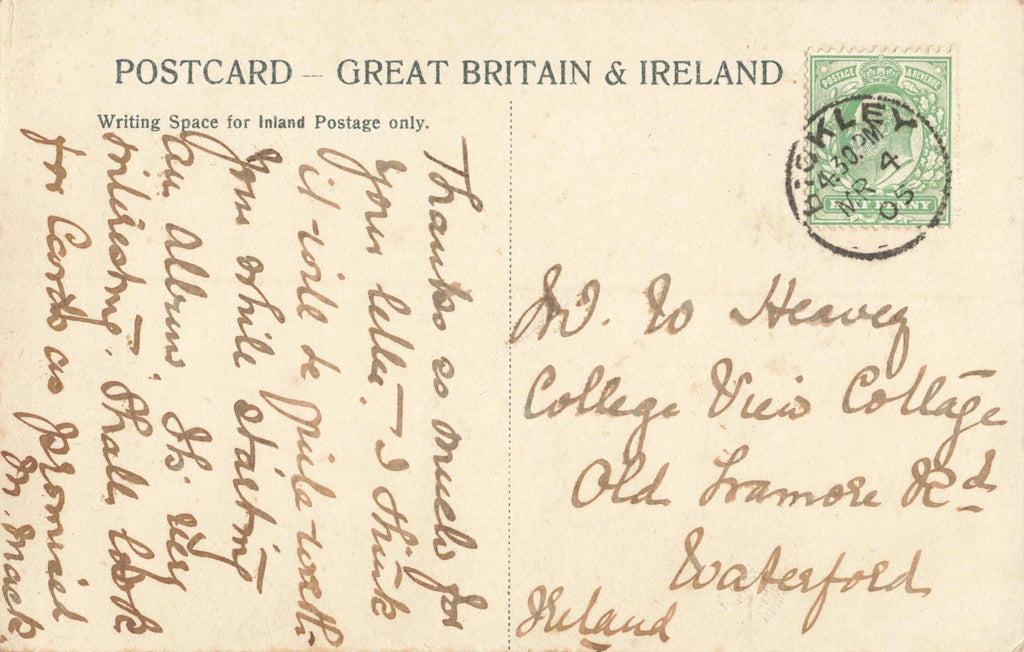 POSTCARD – GREAT BRITAIN & IRELAND
Writing Space for Inland Postage only.
POSTAGE & REVENUE
HALF PENNY
BICKLEY
4.30 PM
MR 4
05
Thanks so much for
your letter – I think
it will be quite worth
your while starting
an album. It's very
interesting. Shall look
for Cards as promised
M. Mack
W. Heavey
College View Cottage
Old Tramore Rd
Waterford
Ireland